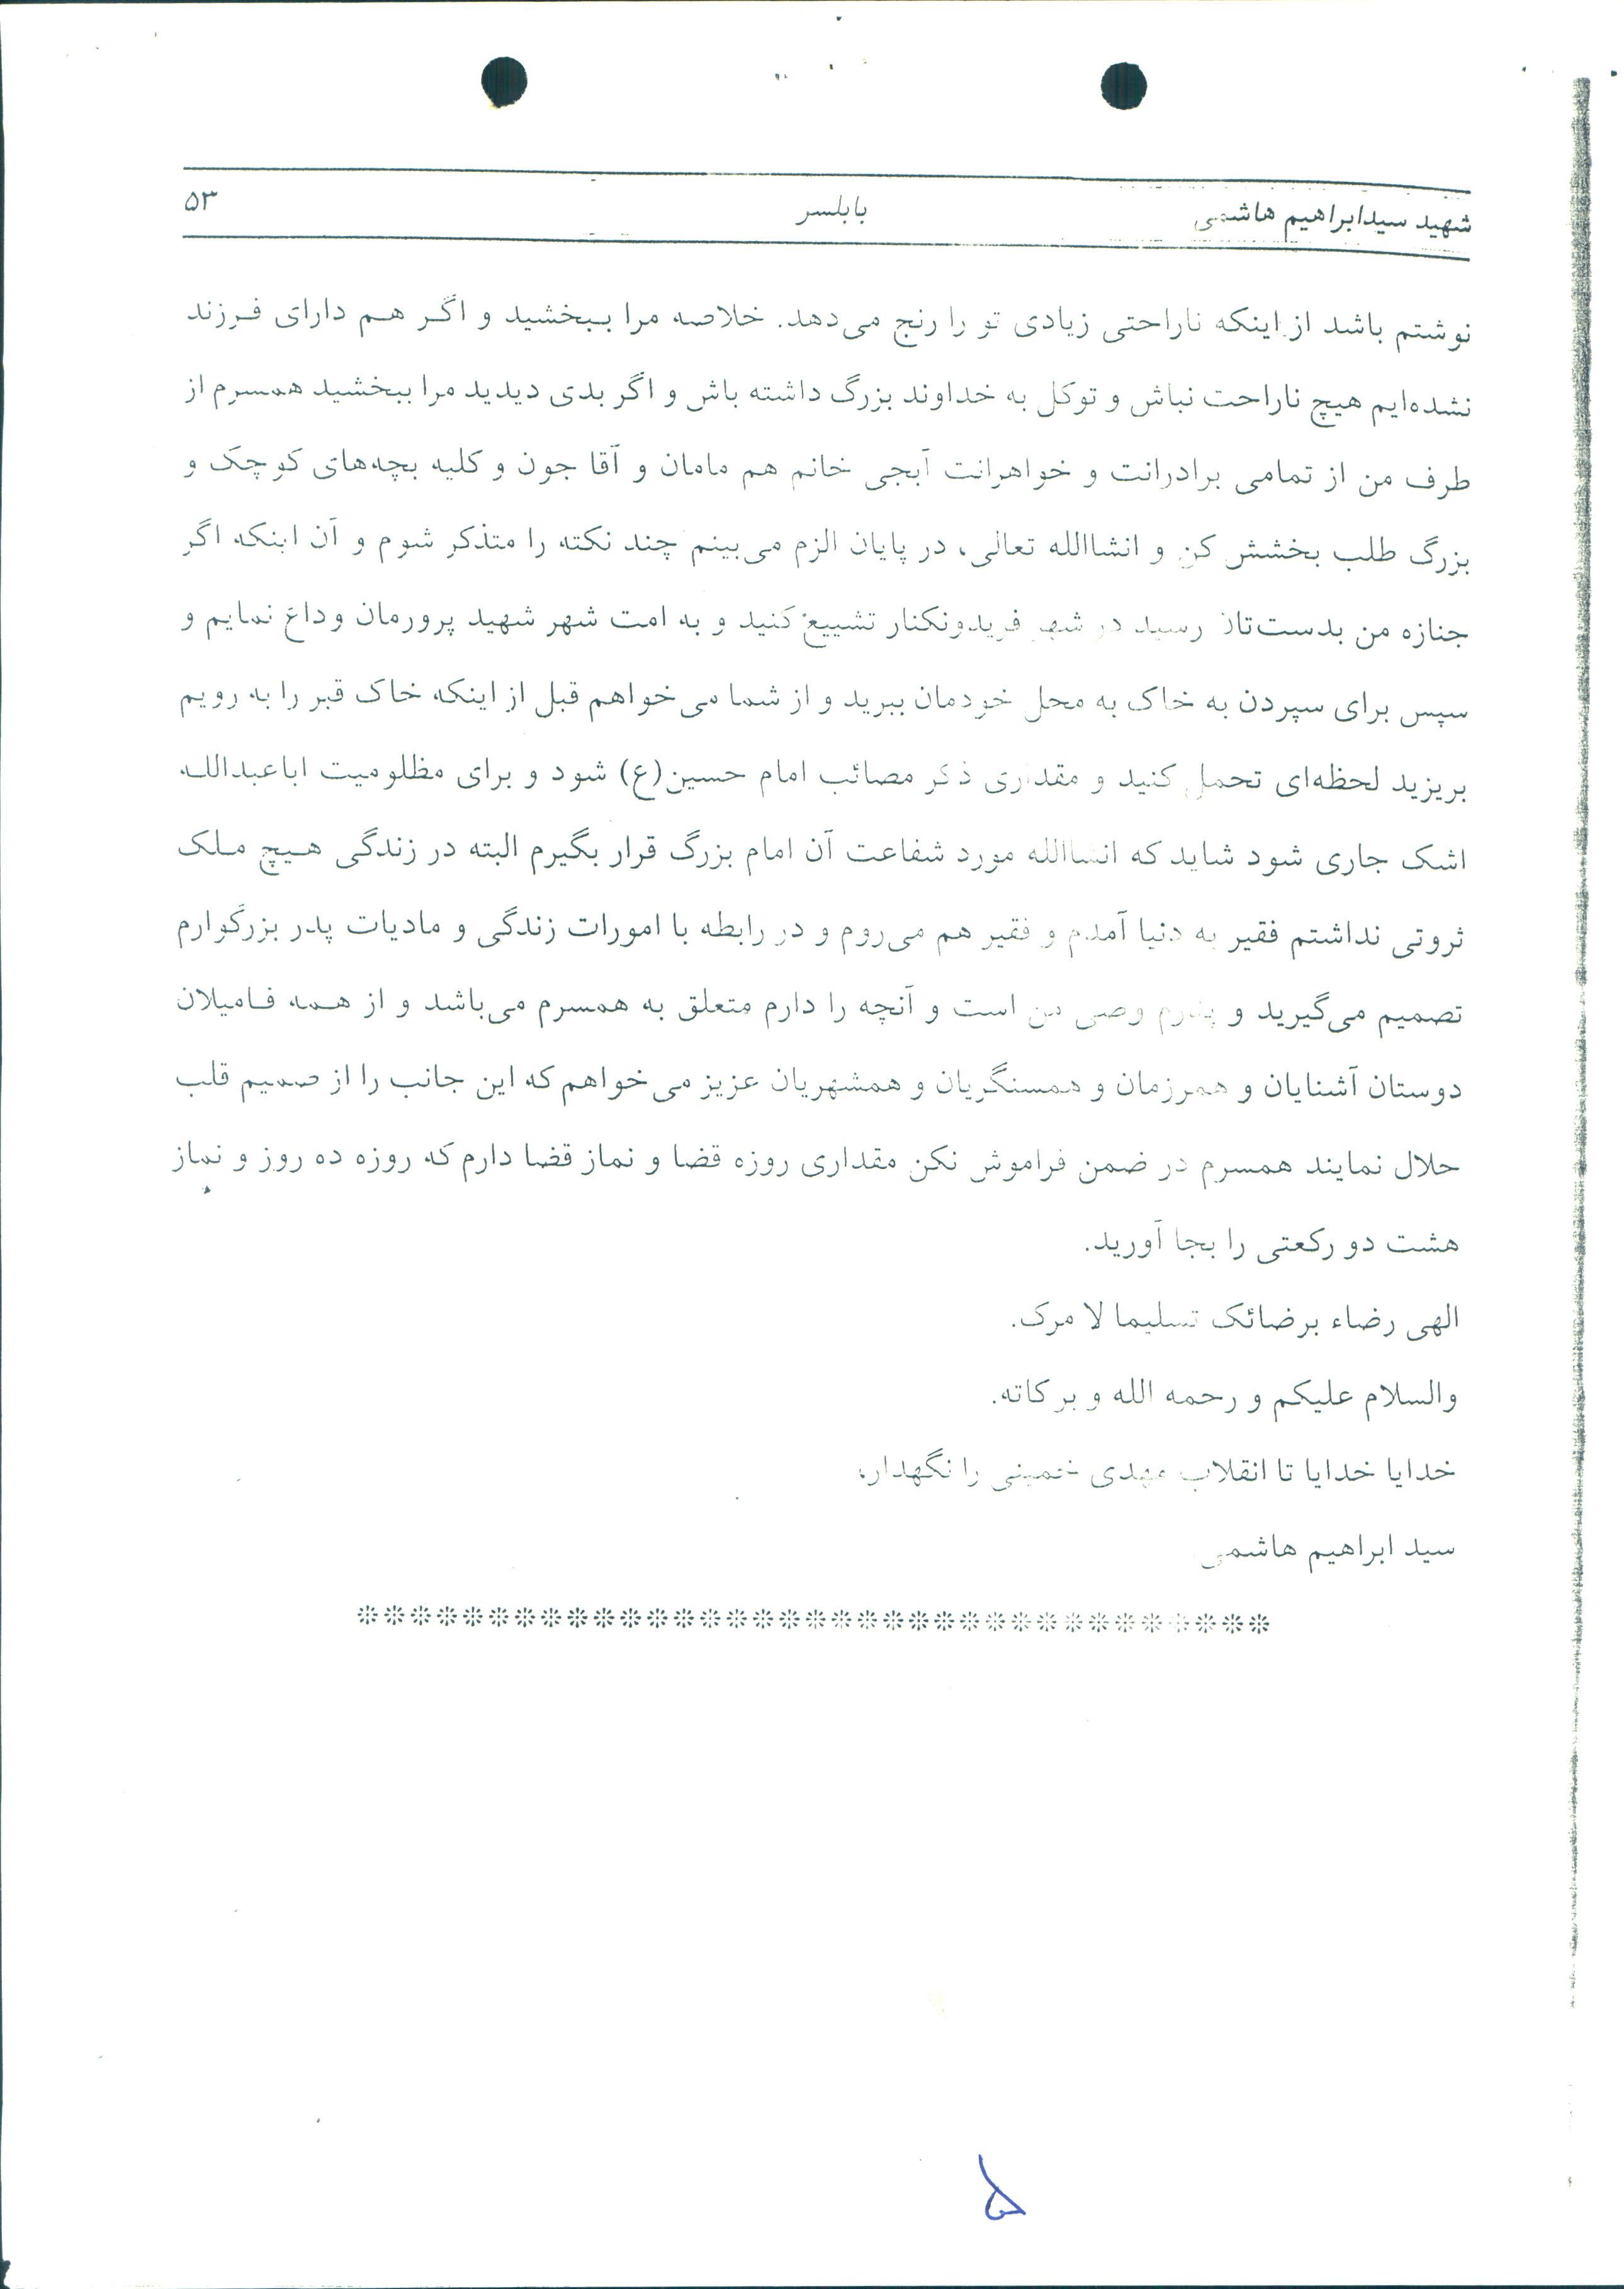 شهید سیدابراهیم هاشمی بابلسر ۵۳
نوشتم باشد از اینکه ناراحتی زیادی تو را رنج می‌دهد. خلاصه مرا ببخشید و اگر هم دارای فرزند
نشده‌ایم هیچ ناراحت نباش و توکل به خداوند بزرگ داشته باش و اگر بدی دیدید مرا ببخشید همسرم از
طرف من از تمامی برادرانت و خواهرانت آبجی خانم هم مامان و آقا جون و کلیه بچه‌های کوچک و
بزرگ طلب بخشش کن و انشاالله تعالی، در پایان الزم می‌بینم چند نکته را متذکر شوم و آن اینکه اگر
جنازه من بدست‌تان رسید در شهر فریدونکنار تشییع کنید و به امت شهر شهید پرورمان وداع نمایم و
سپس برای سپردن به خاک به محل خودمان ببرید و از شما می‌خواهم قبل از اینکه خاک قبر را به رویم
بریزید لحظه‌ای تحمل کنید و مقداری ذکر مصائب امام حسین(ع) شود و برای مظلومیت اباعبدالله
اشک جاری شود شاید که انشاالله مورد شفاعت آن امام بزرگ قرار بگیرم البته در زندگی هیچ ملک
ثروتی نداشتم فقیر به دنیا آمدم و فقیر هم می‌روم و در رابطه با امورات زندگی و مادیات پدر بزرگوارم
تصمیم می‌گیرید و پدرم وصی من است و آنچه را دارم متعلق به همسرم می‌باشد و از همه فامیلان
دوستان آشنایان و همرزمان و همسنگریان و همشهریان عزیز می‌خواهم که این جانب را از صمیم قلب
حلال نمایند همسرم در ضمن فراموش نکن مقداری روزه قضا و نماز قضا دارم که روزه ده روز و نماز
هشت دو رکعتی را بجا آورید.
الهی رضاء برضائک تسلیما لا مرک.
والسلام علیکم و رحمه الله و برکاته.
خدایا خدایا تا انقلاب مهدی خمینی را نگهدار،
سید ابراهیم هاشمی
❊❊❊❊❊❊❊❊❊❊❊❊❊❊❊❊❊❊❊❊❊❊❊❊❊❊❊❊❊❊❊❊❊❊❊
۵